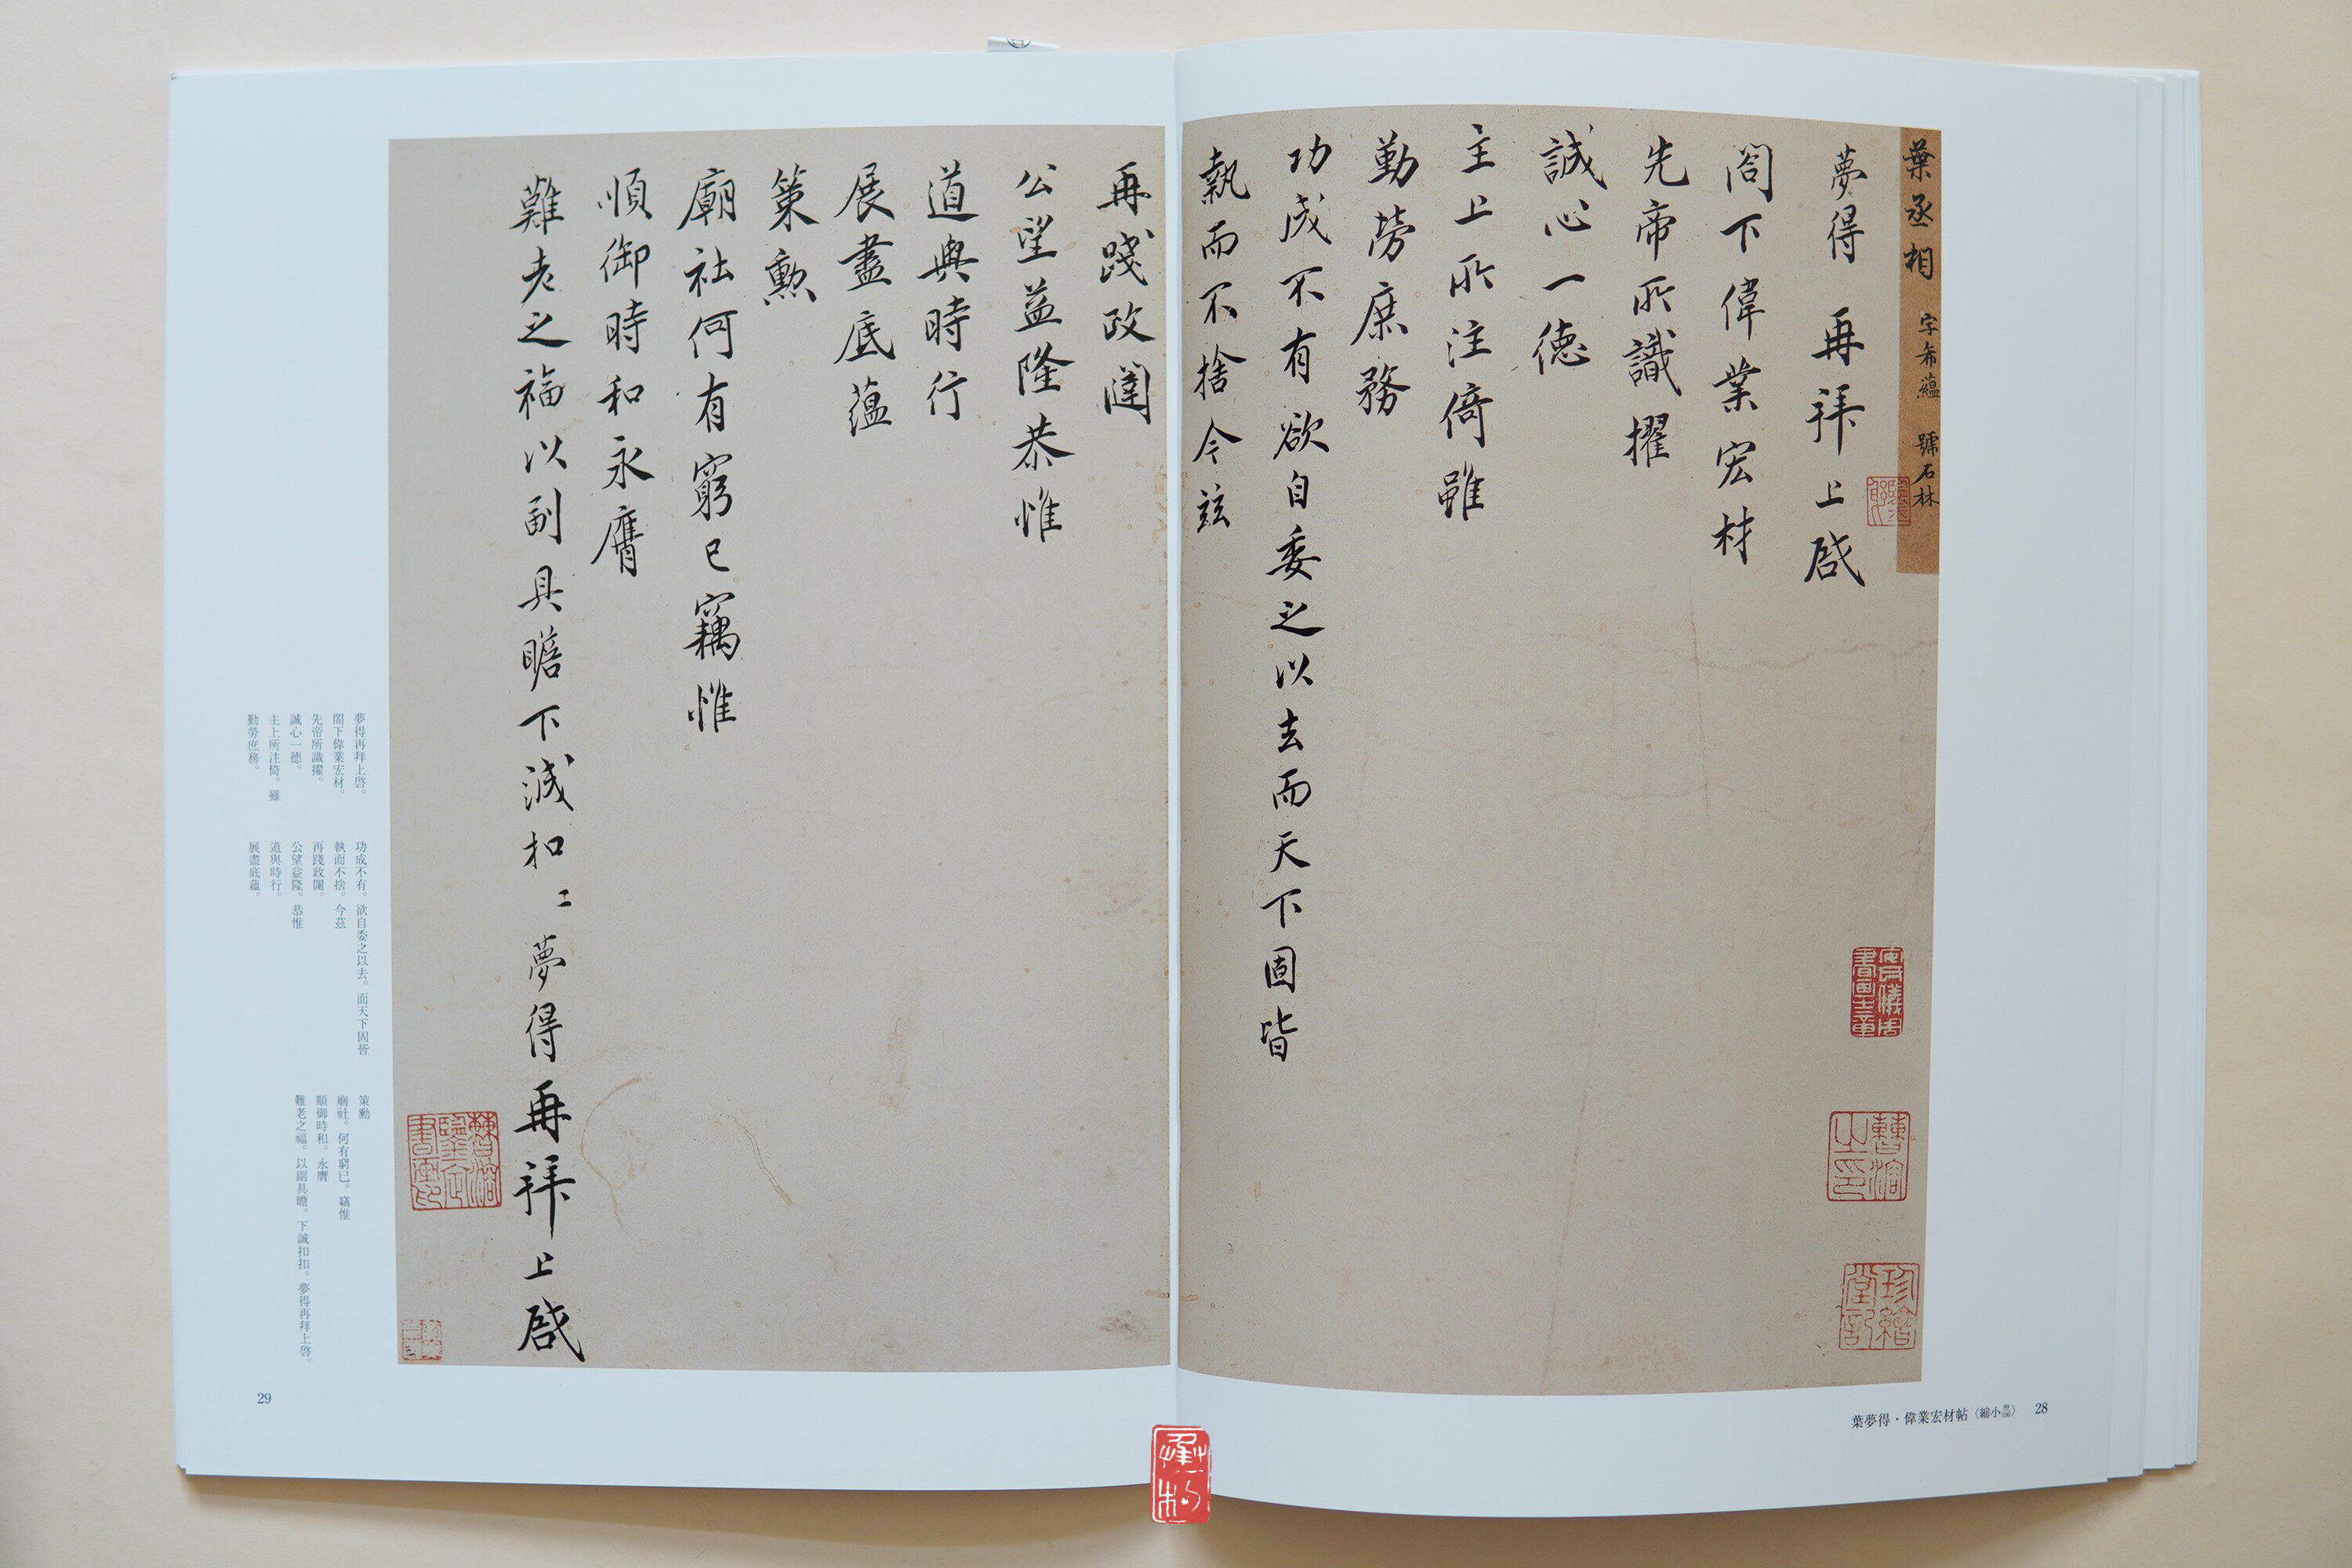 葉丞相 字希蘊 號石林
夢得 再拜上啓
閤下偉業宏材
先帝所識擢
誠心一德
主上所注倚雖
勤勞庶務
功成不有欲自委之以去而天下固皆
執而不捨今茲
再踐政闥
公望益隆恭惟
道與時行
展盡底蘊
策勲
廟社何有窮已竊惟
順御時和永膺
難老之福以副具瞻下誠扣〻夢得再拜上啓
珍繪堂記
葉夢得・偉業宏材帖〈縮小〉 28
夢得再拜上啓。
閤下偉業宏材。
先帝所識擢。
誠心一德。
主上所注倚。雖
勤勞庶務。
功成不有。欲自委之以去。而天下固皆
執而不捨。今茲
再踐政闥。
公望益隆。恭惟
道與時行。
展盡底蘊。
策勲
廟社。何有窮已。竊惟
順御時和。永膺
難老之福。以副具瞻。下誠扣扣。夢得再拜上啓。
29